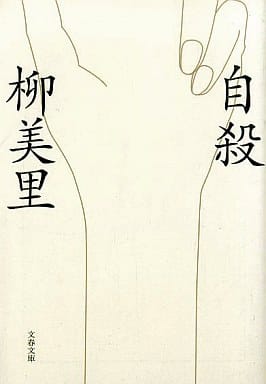 自殺
柳美里
文春文庫